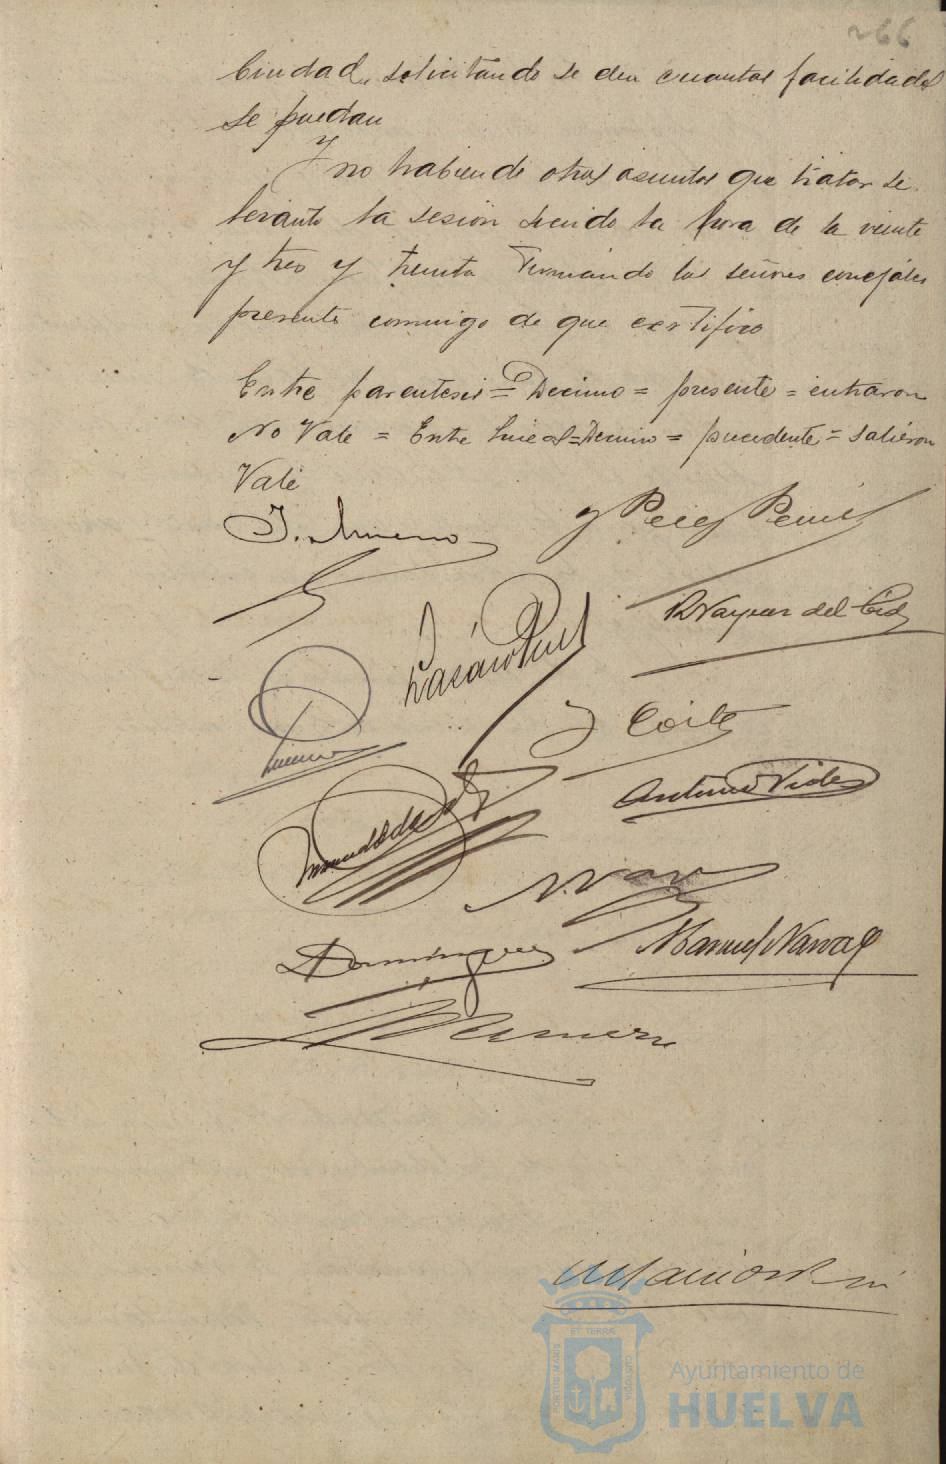 266
Ciudad, solicitando se den cuantas facilidades
se puedan
Y no habiendo otros asuntos que tratar se
levanto la sesion siendo la hora de la veinte
y tres y treinta Firmando los señores concejales
presente conmigo de que certifico
Entre parentesis = Decimo = presente = entraron
No Vale = Entre lineas = Decimo = precedente = salieron
Vale
y Perez
R Vazquez del Cid
J Corte
Antonio Vides
Dominguez
Manuel Narvaez
PORTUS MARIS
ET TERRAE
CUSTODIA
Ayuntamiento de
HUELVA